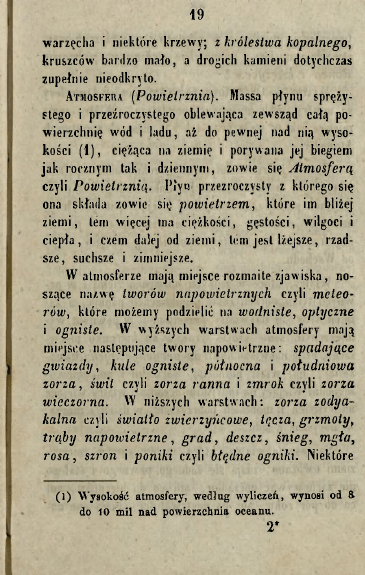 19
warzęcha i niektóre krzewy; z królestwa kopalnego,
kruszców bardzo mało, a drogich kamieni dotychczas
zupełnie nieodkryto.
Atmosfera (Powietrznia). Massa płynu spręży-
stego i przeźroczystego oblewająca zewsząd całą po-
wierzchnię wód i lądu, aż do pewnej nad nią wyso-
kości (1), ciężąca na ziemię i porywana jej biegiem
jak rocznym tak i dziennym, zowie się Atmosferą
czyli Powietrznią. Płyn przezroczysty z którego się
ona składa zowie się powietrzem, które im bliżej
ziemi, tém więcej ma ciężkości, gęstości, wilgoci i
ciepła, i czem dalej od ziemi, tém jest lżejsze, rzad-
sze, suchsze i zimniejsze.
W atmosferze mają miejsce rozmaite zjawiska, no-
szące nazwę tworów napowietrznych czyli meteo-
rów, które możemy podzielić na wodniste, optyczne
i ogniste. W wyższych warstwach atmosfery mają
miejsce następujące twory napowietrzne: spadające
gwiazdy, kule ogniste, północna i południowa
zorza, świt czyli zorza ranna i zmrok czyli zorza
wieczorna. W niższych warstwach: zorza zodya-
kalna czyli światło zwierzyńcowe, tęcza, grzmoty,
trąby napowietrzne, grad, deszcz, śnieg, mgła,
rosa, szron i poniki czyli błędne ogniki. Niektóre
(1) Wysokość atmosfery, według wyliczeń, wynosi od 8
do 10 mil nad powierzchnia oceanu.
2*